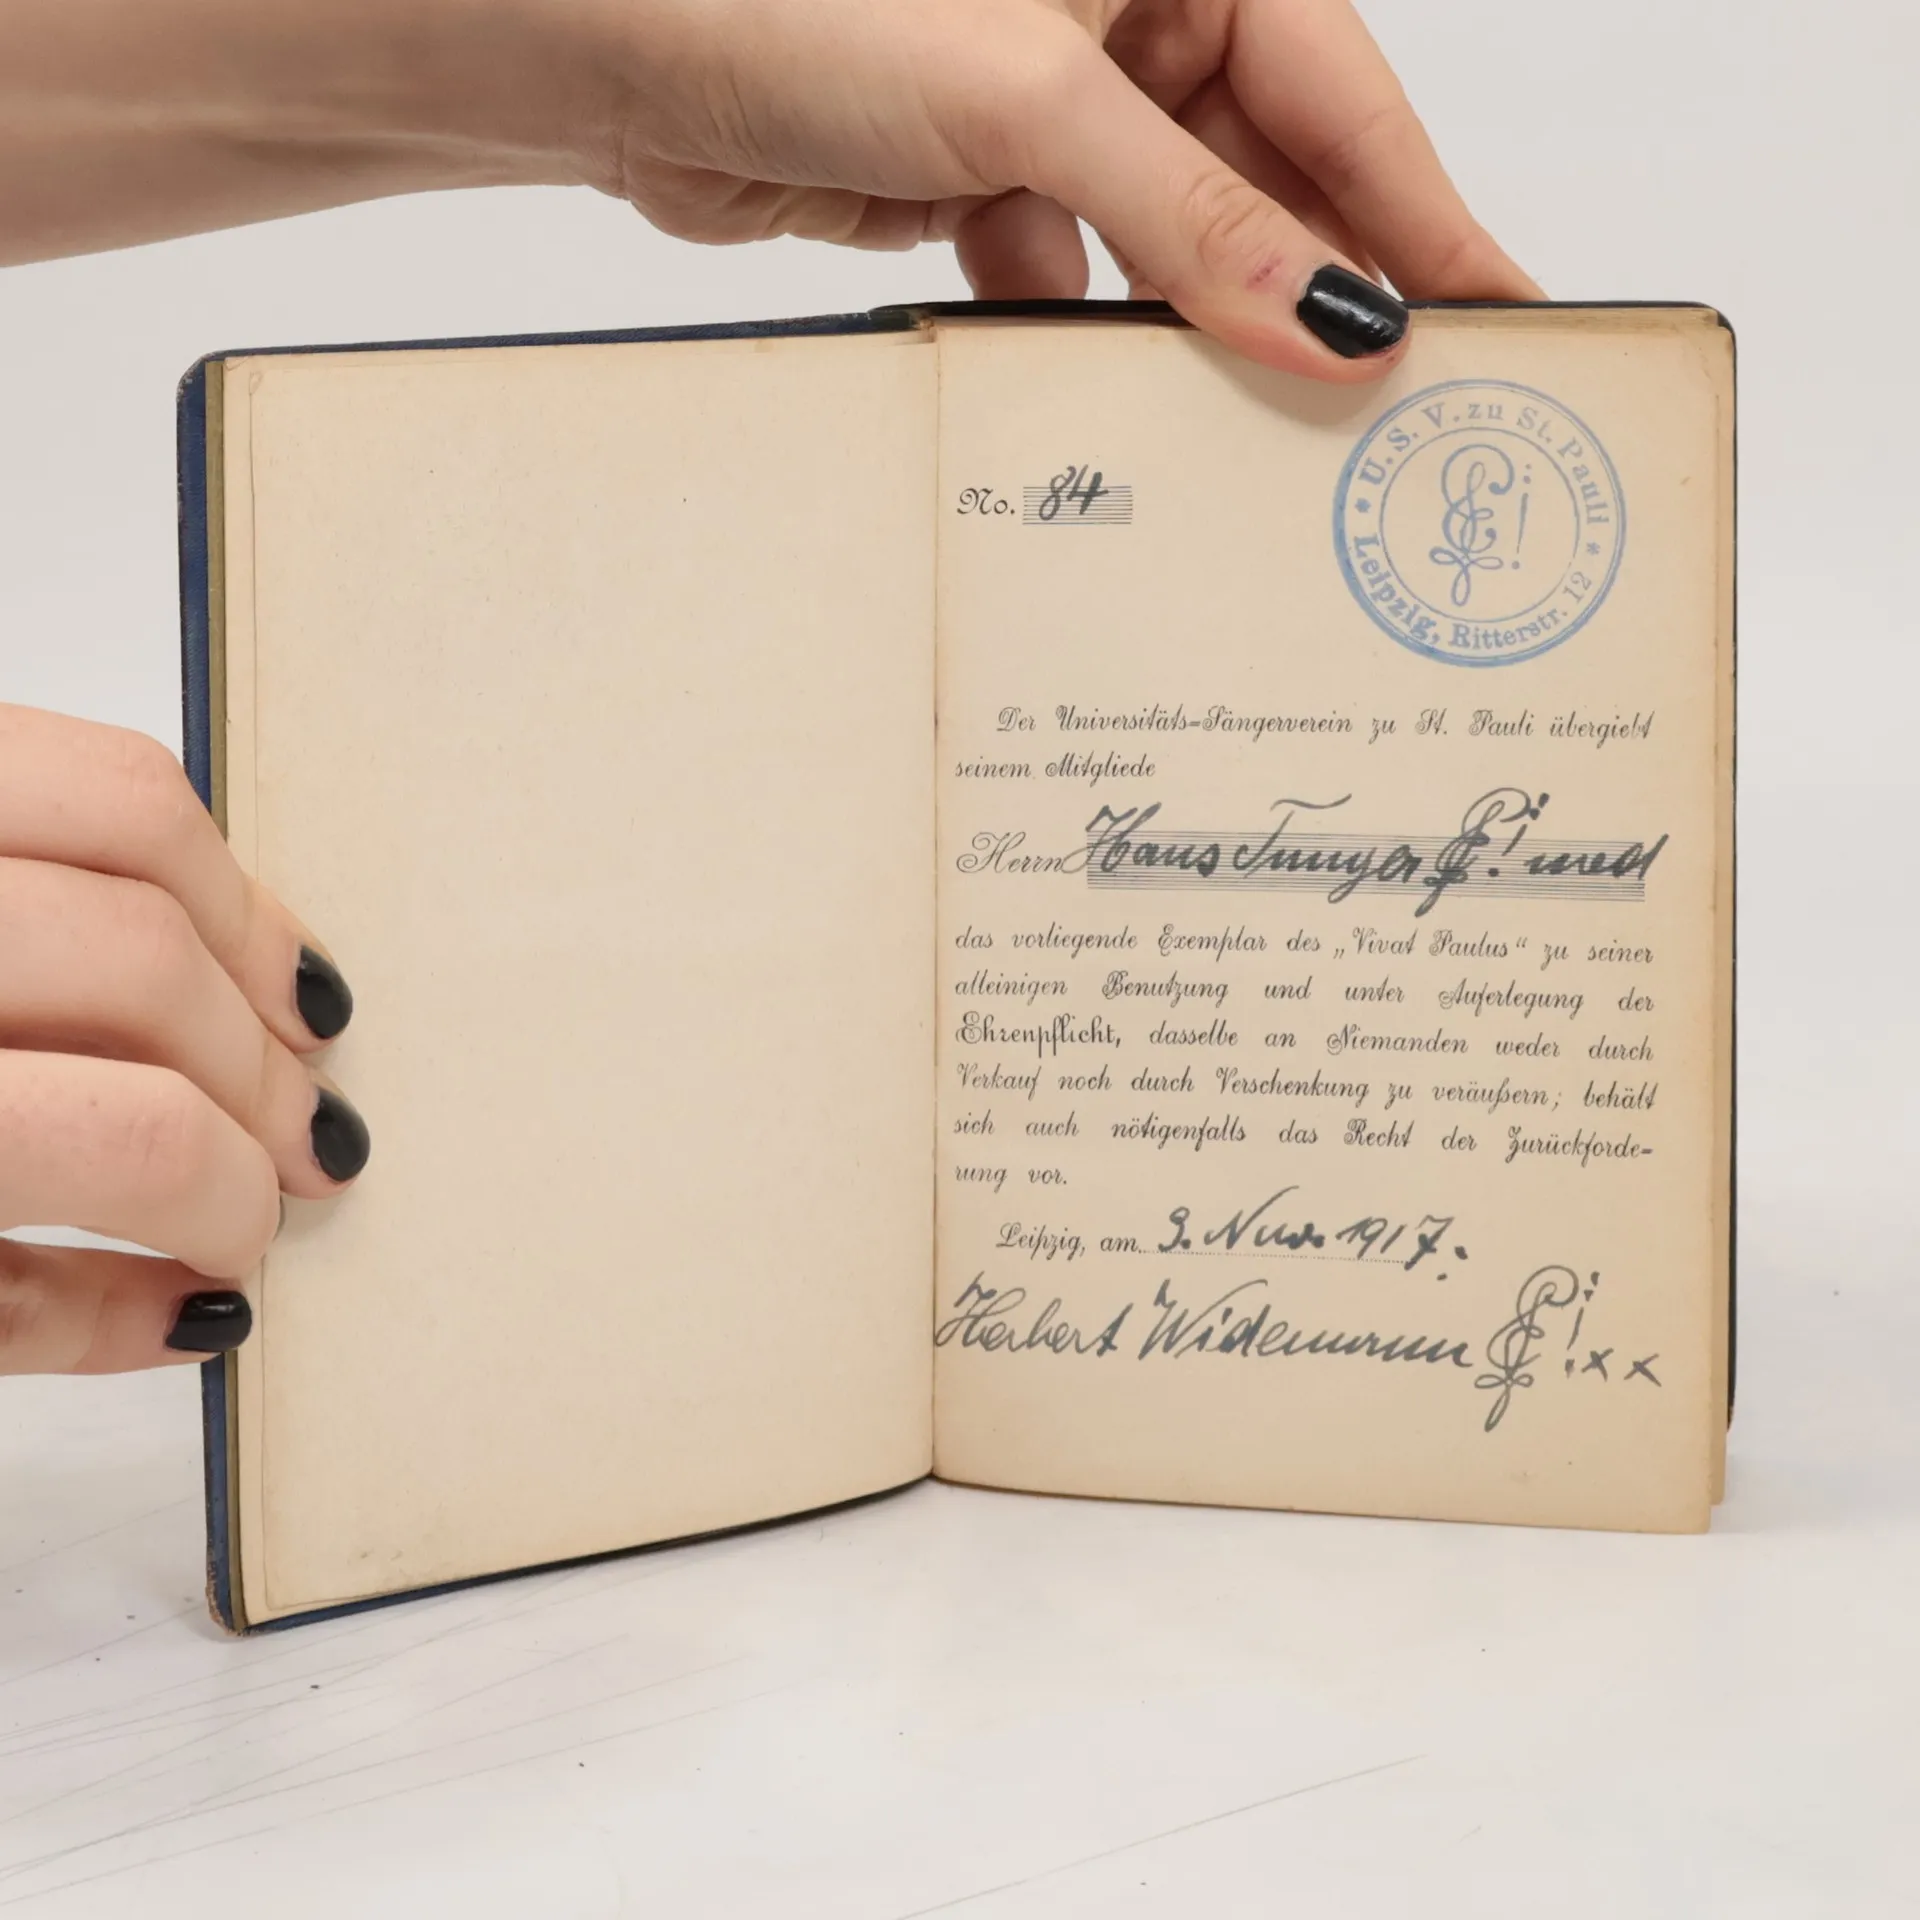 U. S. V. zu St. Pauli
Leipzig, Ritterstr. 12
No. 84
Der Universitäts-Sängerverein zu St. Pauli übergiebt
seinem Mitgliede
Herrn Hans Tunger med
das vorliegende Exemplar des „Vivat Paulus“ zu seiner
alleinigen Benutzung und unter Auferlegung der
Ehrenpflicht, dasselbe an Niemanden weder durch
Verkauf noch durch Verschenkung zu veräußern; behält
sich auch nötigenfalls das Recht der Zurückforde-
rung vor.
Leipzig, am 3. Nov. 1917.
Herbert Widemann xx